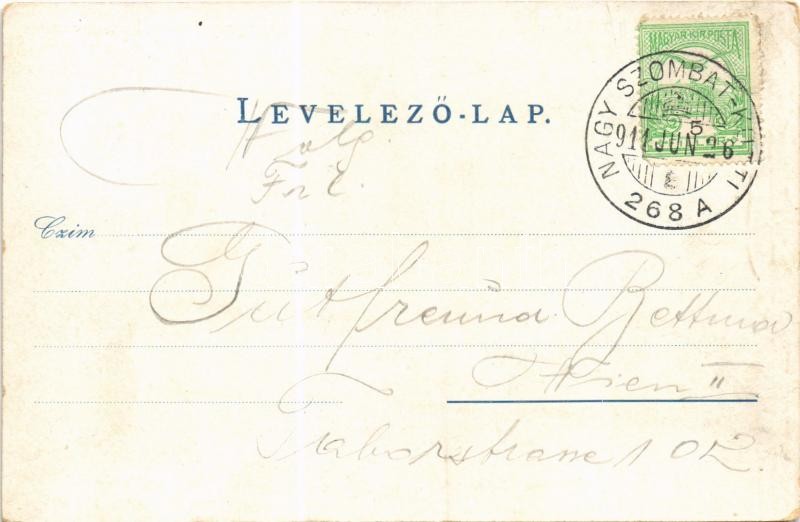 MAGYAR·KIR·POSTA
LEVELEZŐ-LAP.
NAGY SZOMBAT-K TI
5
911 JUN 26
268 A
Wolg
Frl.
Czim
Gutfreund Bettina
Wien II
Taborstrasse 102.